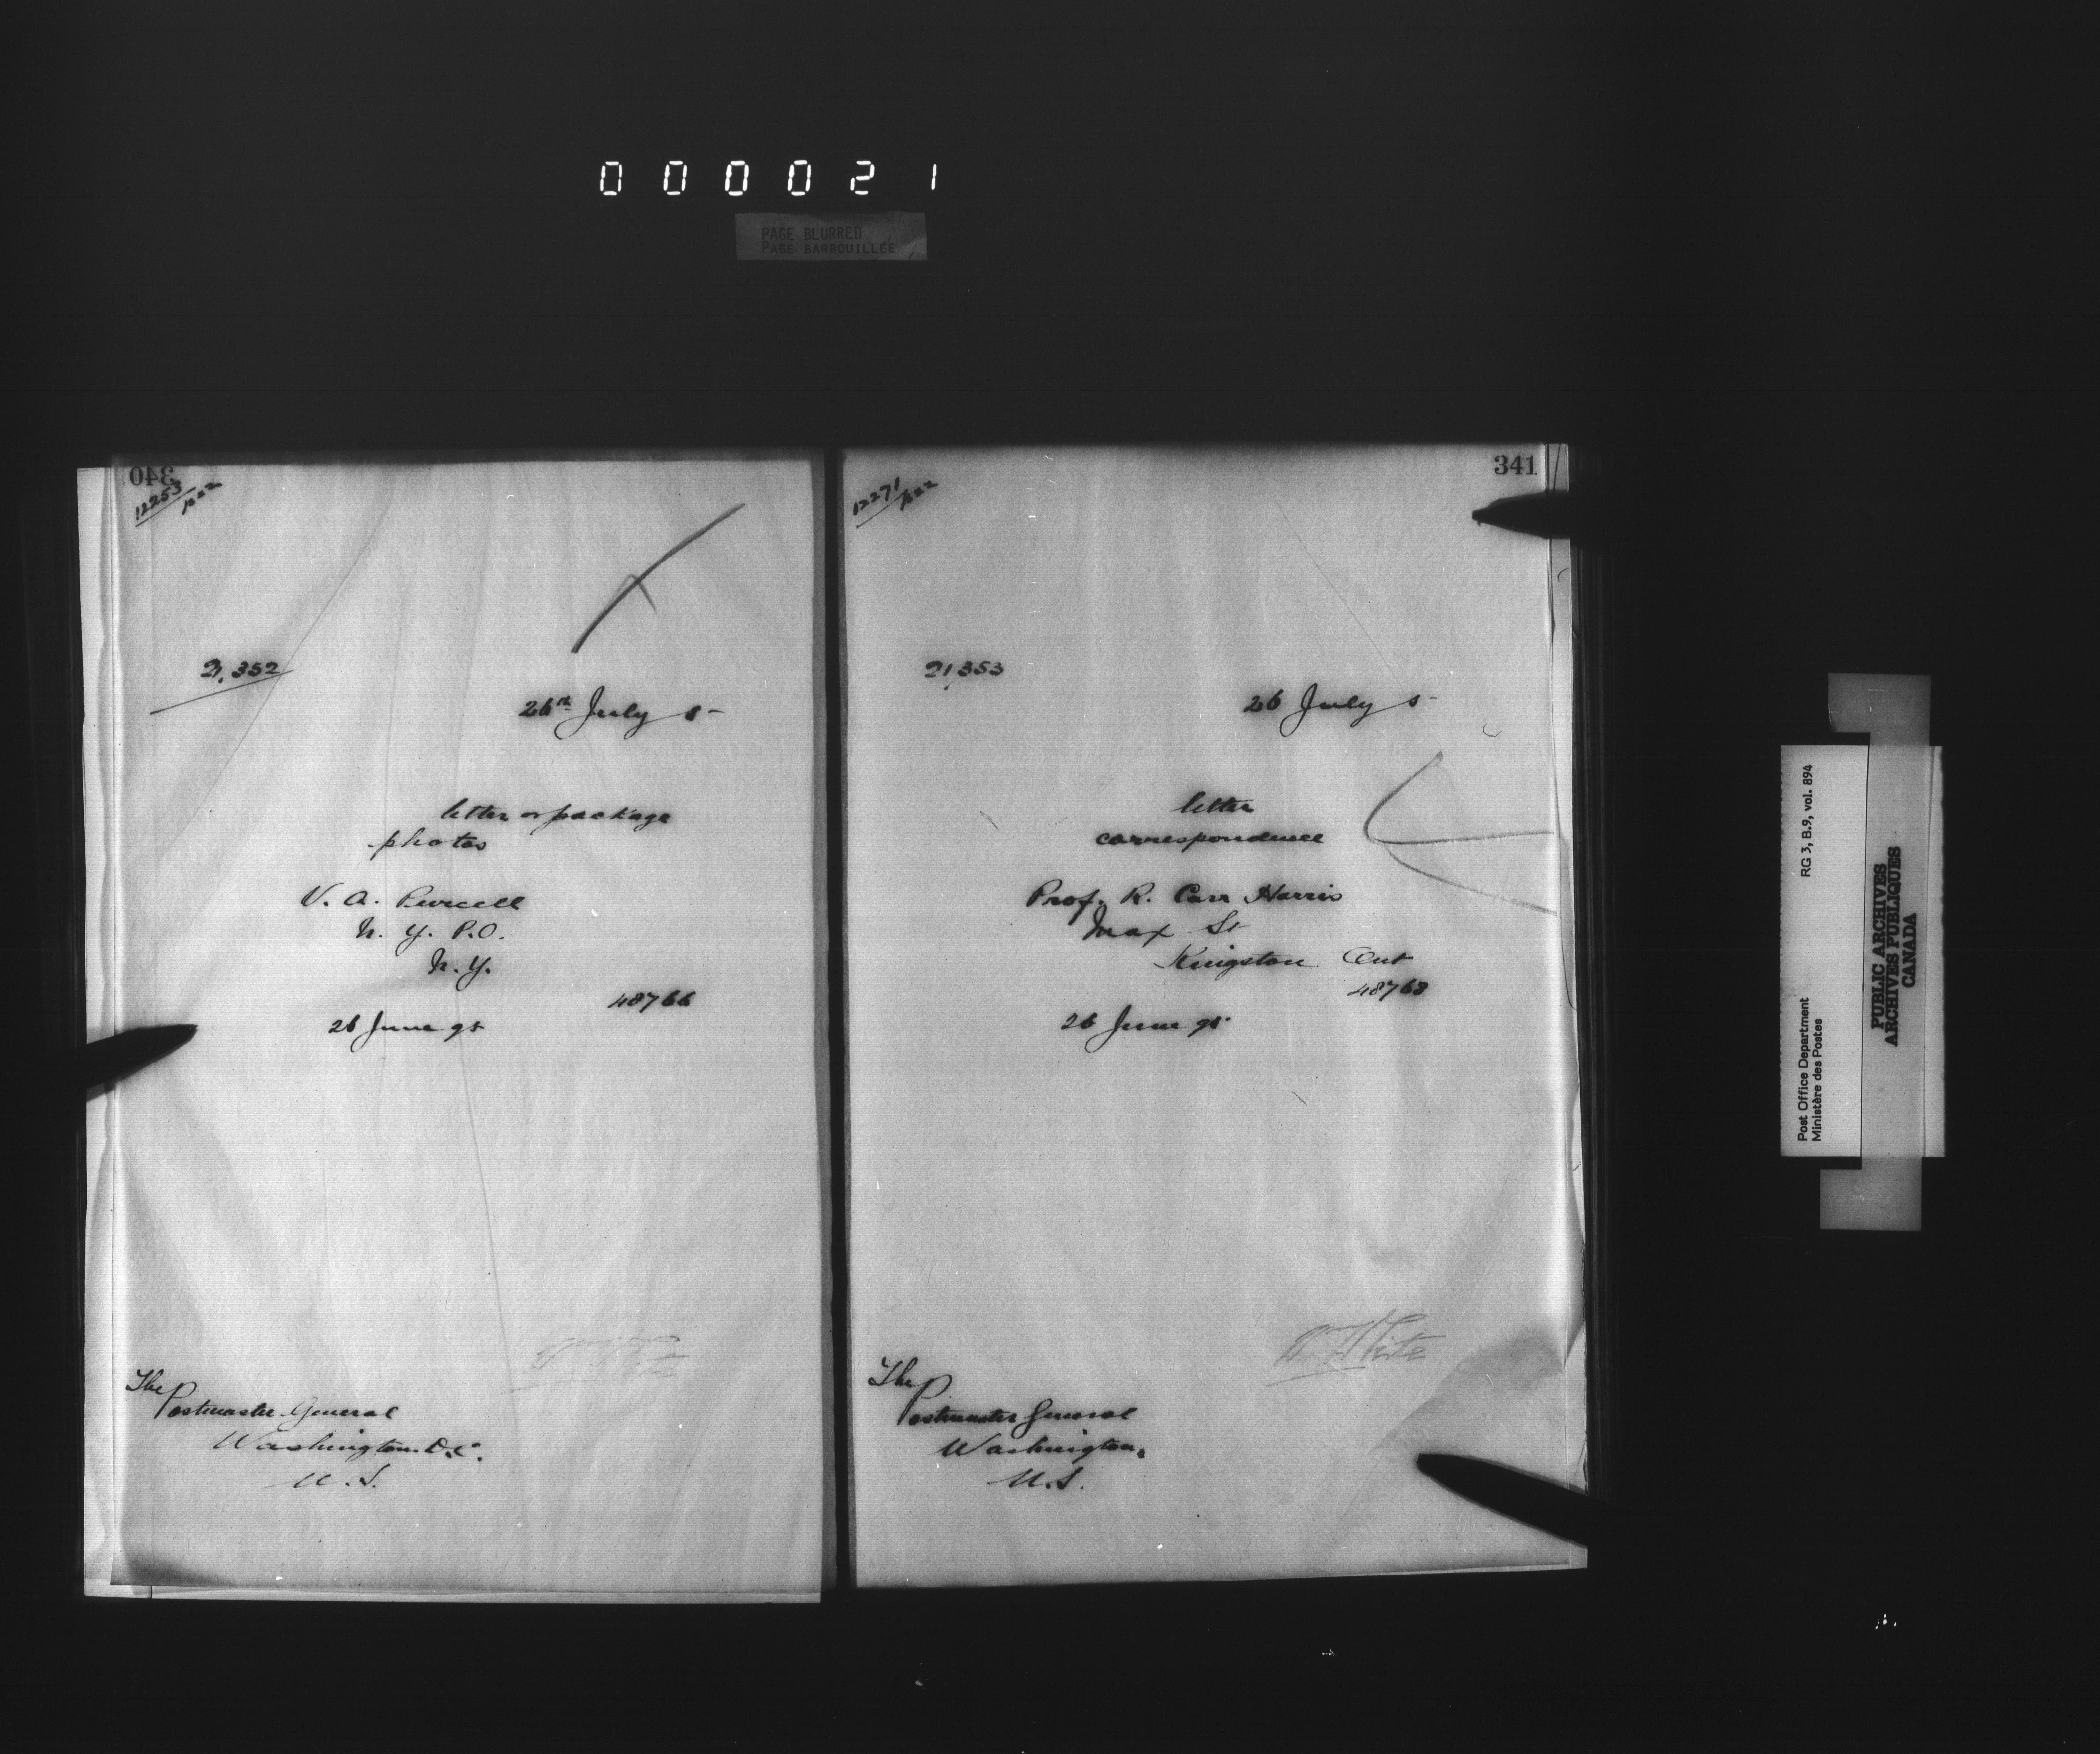 000021
PAGE BLURRED
PAGE BARBOUILLÉE
340
12253
21,352
26th July 5-
letter or package
photos
V. A. Purcell
N. Y. P.O.
N. Y.
48766
26 June 95
The
Postmaster General
Washington D.C.
U. S.
341
12271
21,353
26 July 5-
letter
correspondence
Prof. R. Carr Harris
Max St
Kingston Ont
48768
26 June 95
White
The
Postmaster General
Washington
U.S.
Post Office Department RG 3, B.9, vol. 894
Ministère des Postes
PUBLIC ARCHIVES
ARCHIVES PUBLIQUES
CANADA